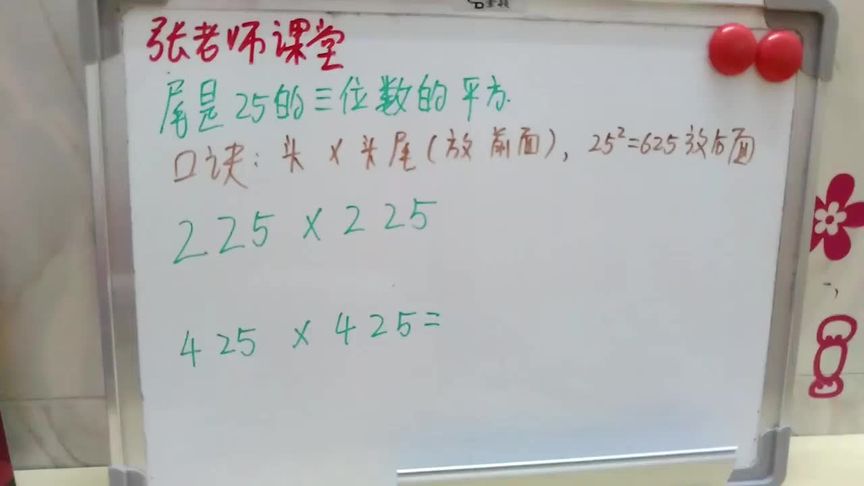 张老师课堂
尾是25的三位数的平方.
口诀:头×头尾(放前面),25²=625放后面
225×225
425×425=